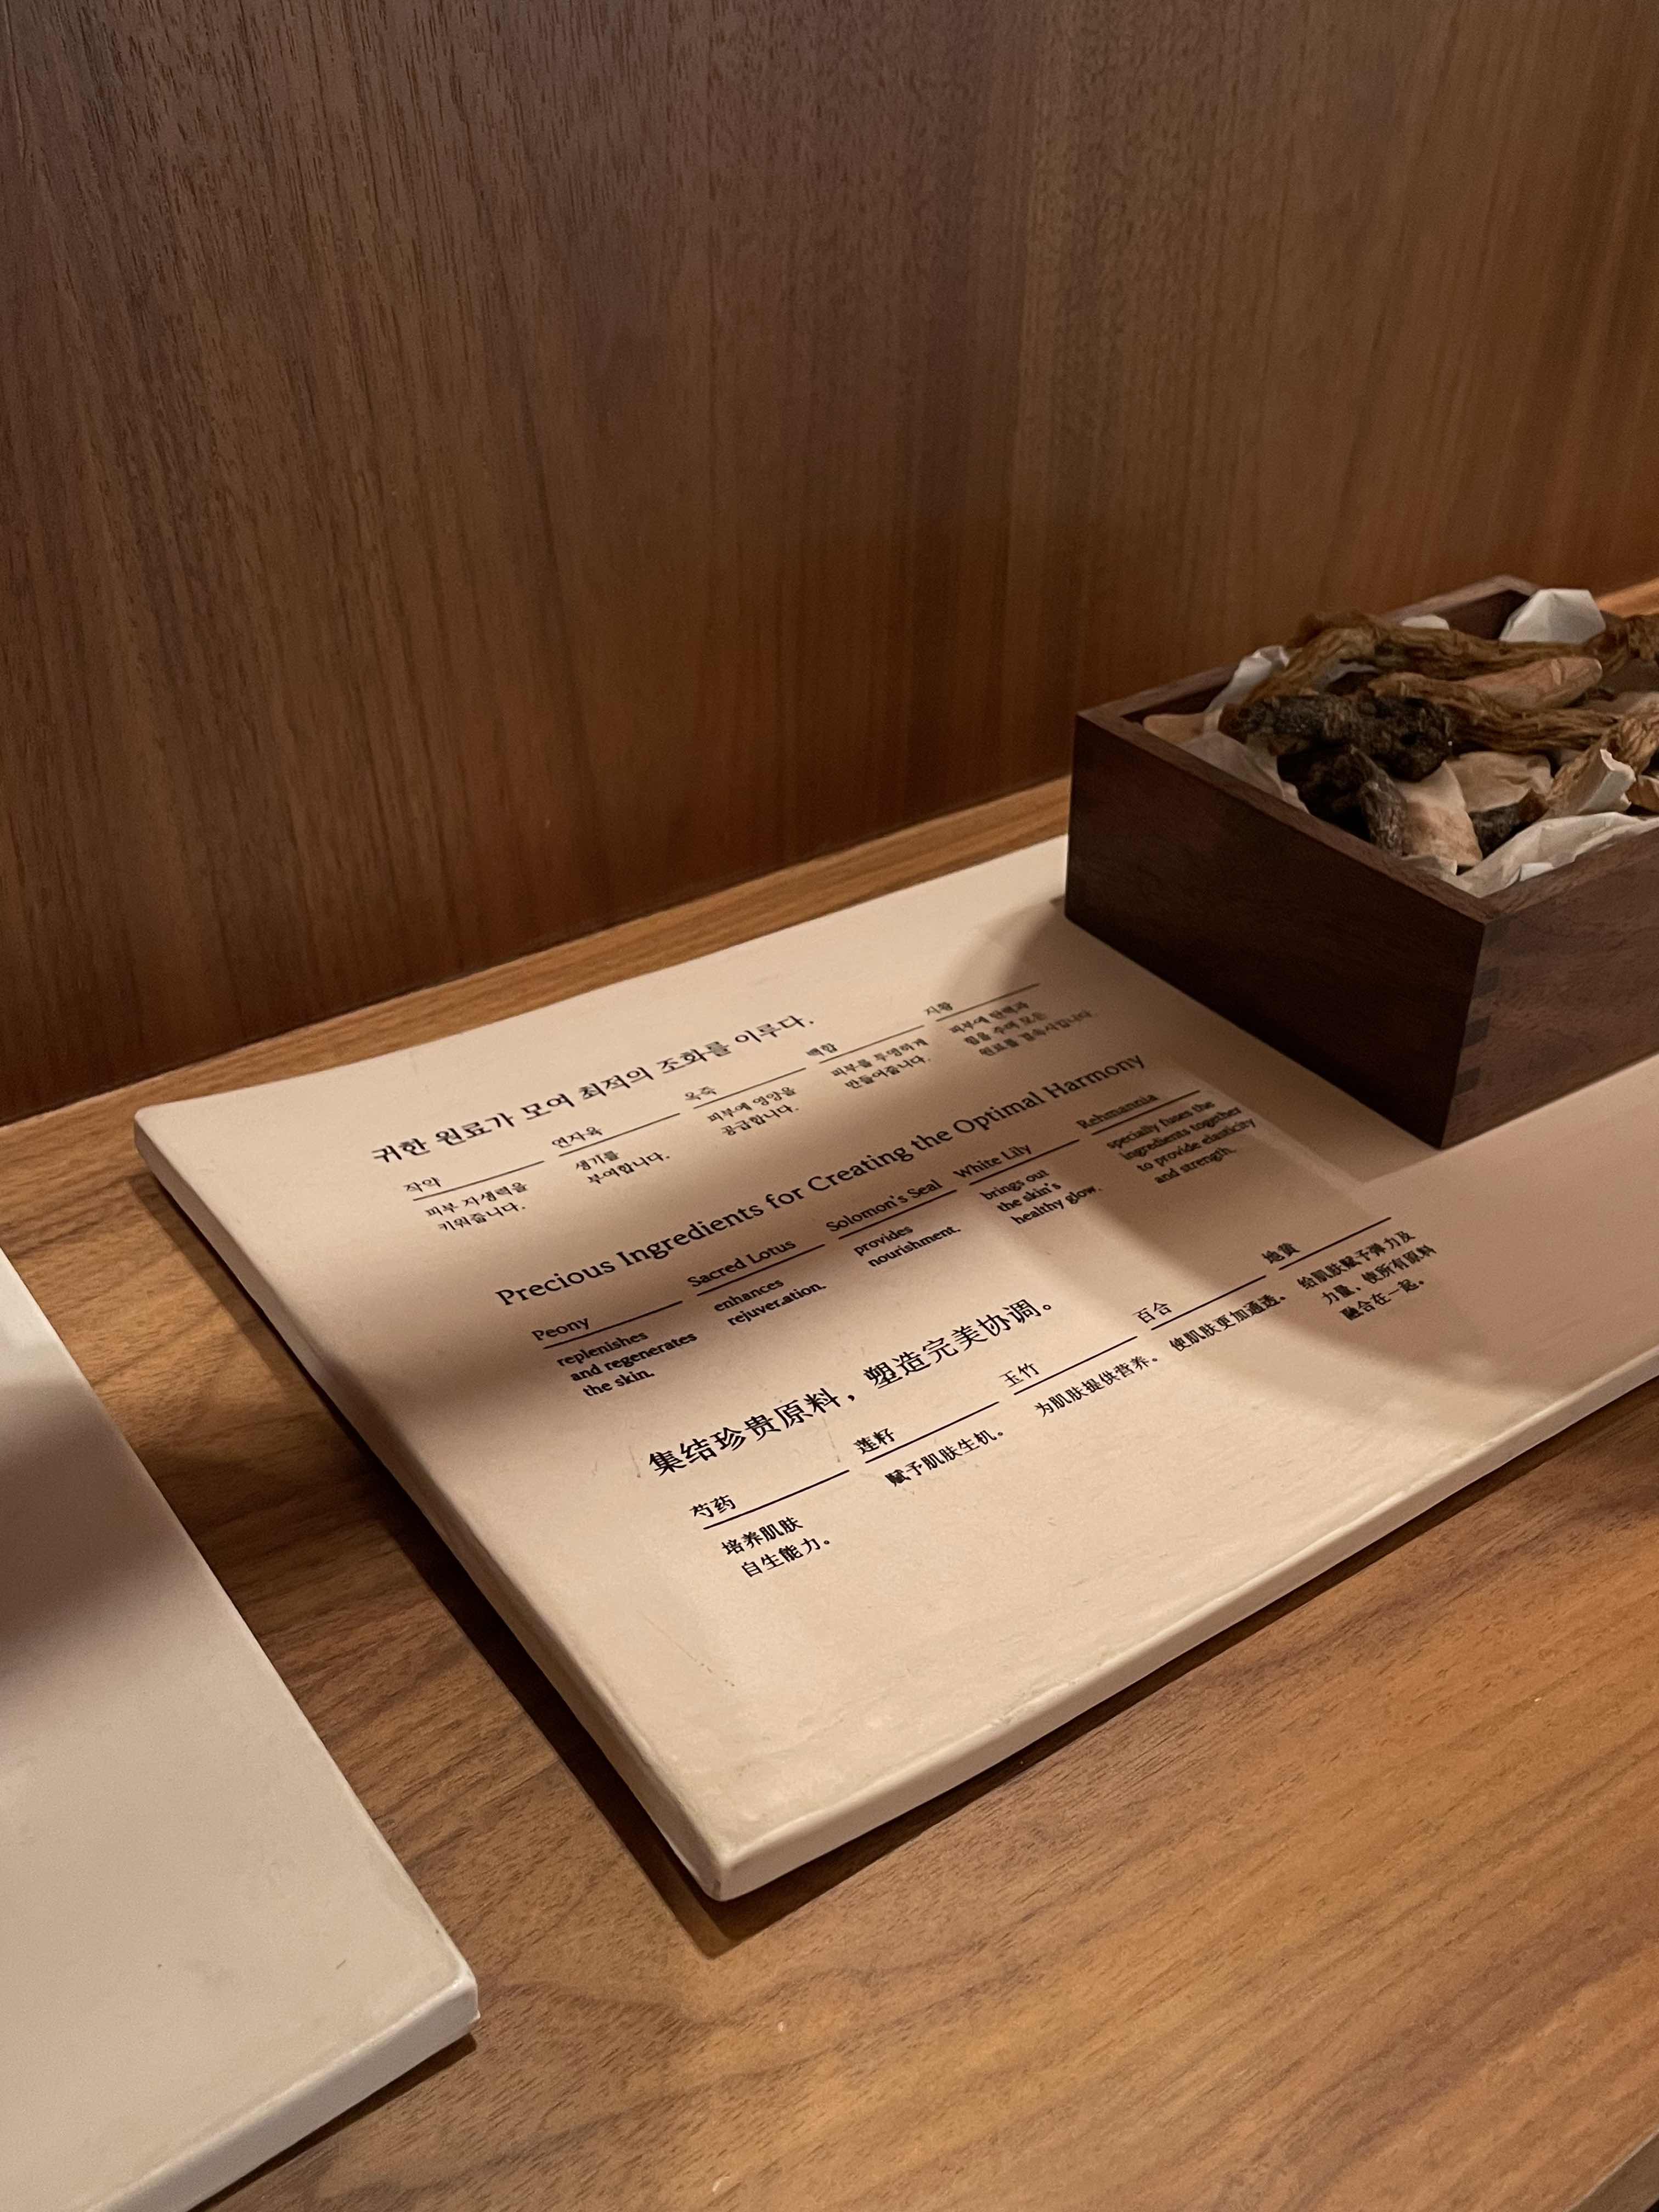 귀한 원료가 모여 최적의 조화를 이루다.
작약
피부 자생력을
키워줍니다.
연자육
생기를
부여합니다.
옥죽
피부에 영양을
공급합니다.
백합
피부를 투명하게
만들어줍니다.
지황
피부에 탄력과
힘을 주며 모든
원료를 결속시킵니다.
Precious Ingredients for Creating the Optimal Harmony
Peony
replenishes
and regenerates
the skin.
Sacred Lotus
enhances
rejuveration.
Solomon's Seal
provides
nourishment.
White Lily
brings out
the skin's
healthy glow.
Rehmannia
specially fuses the
ingredients together
to provide elasticity
and strength.
集结珍贵原料，塑造完美协调。
芍药
培养肌肤
自生能力。
莲籽
赋予肌肤生机。
玉竹
为肌肤提供营养。
百合
使肌肤更加通透。
地黄
给肌肤赋予弹力及
力量，使所有原料
融合在一起。